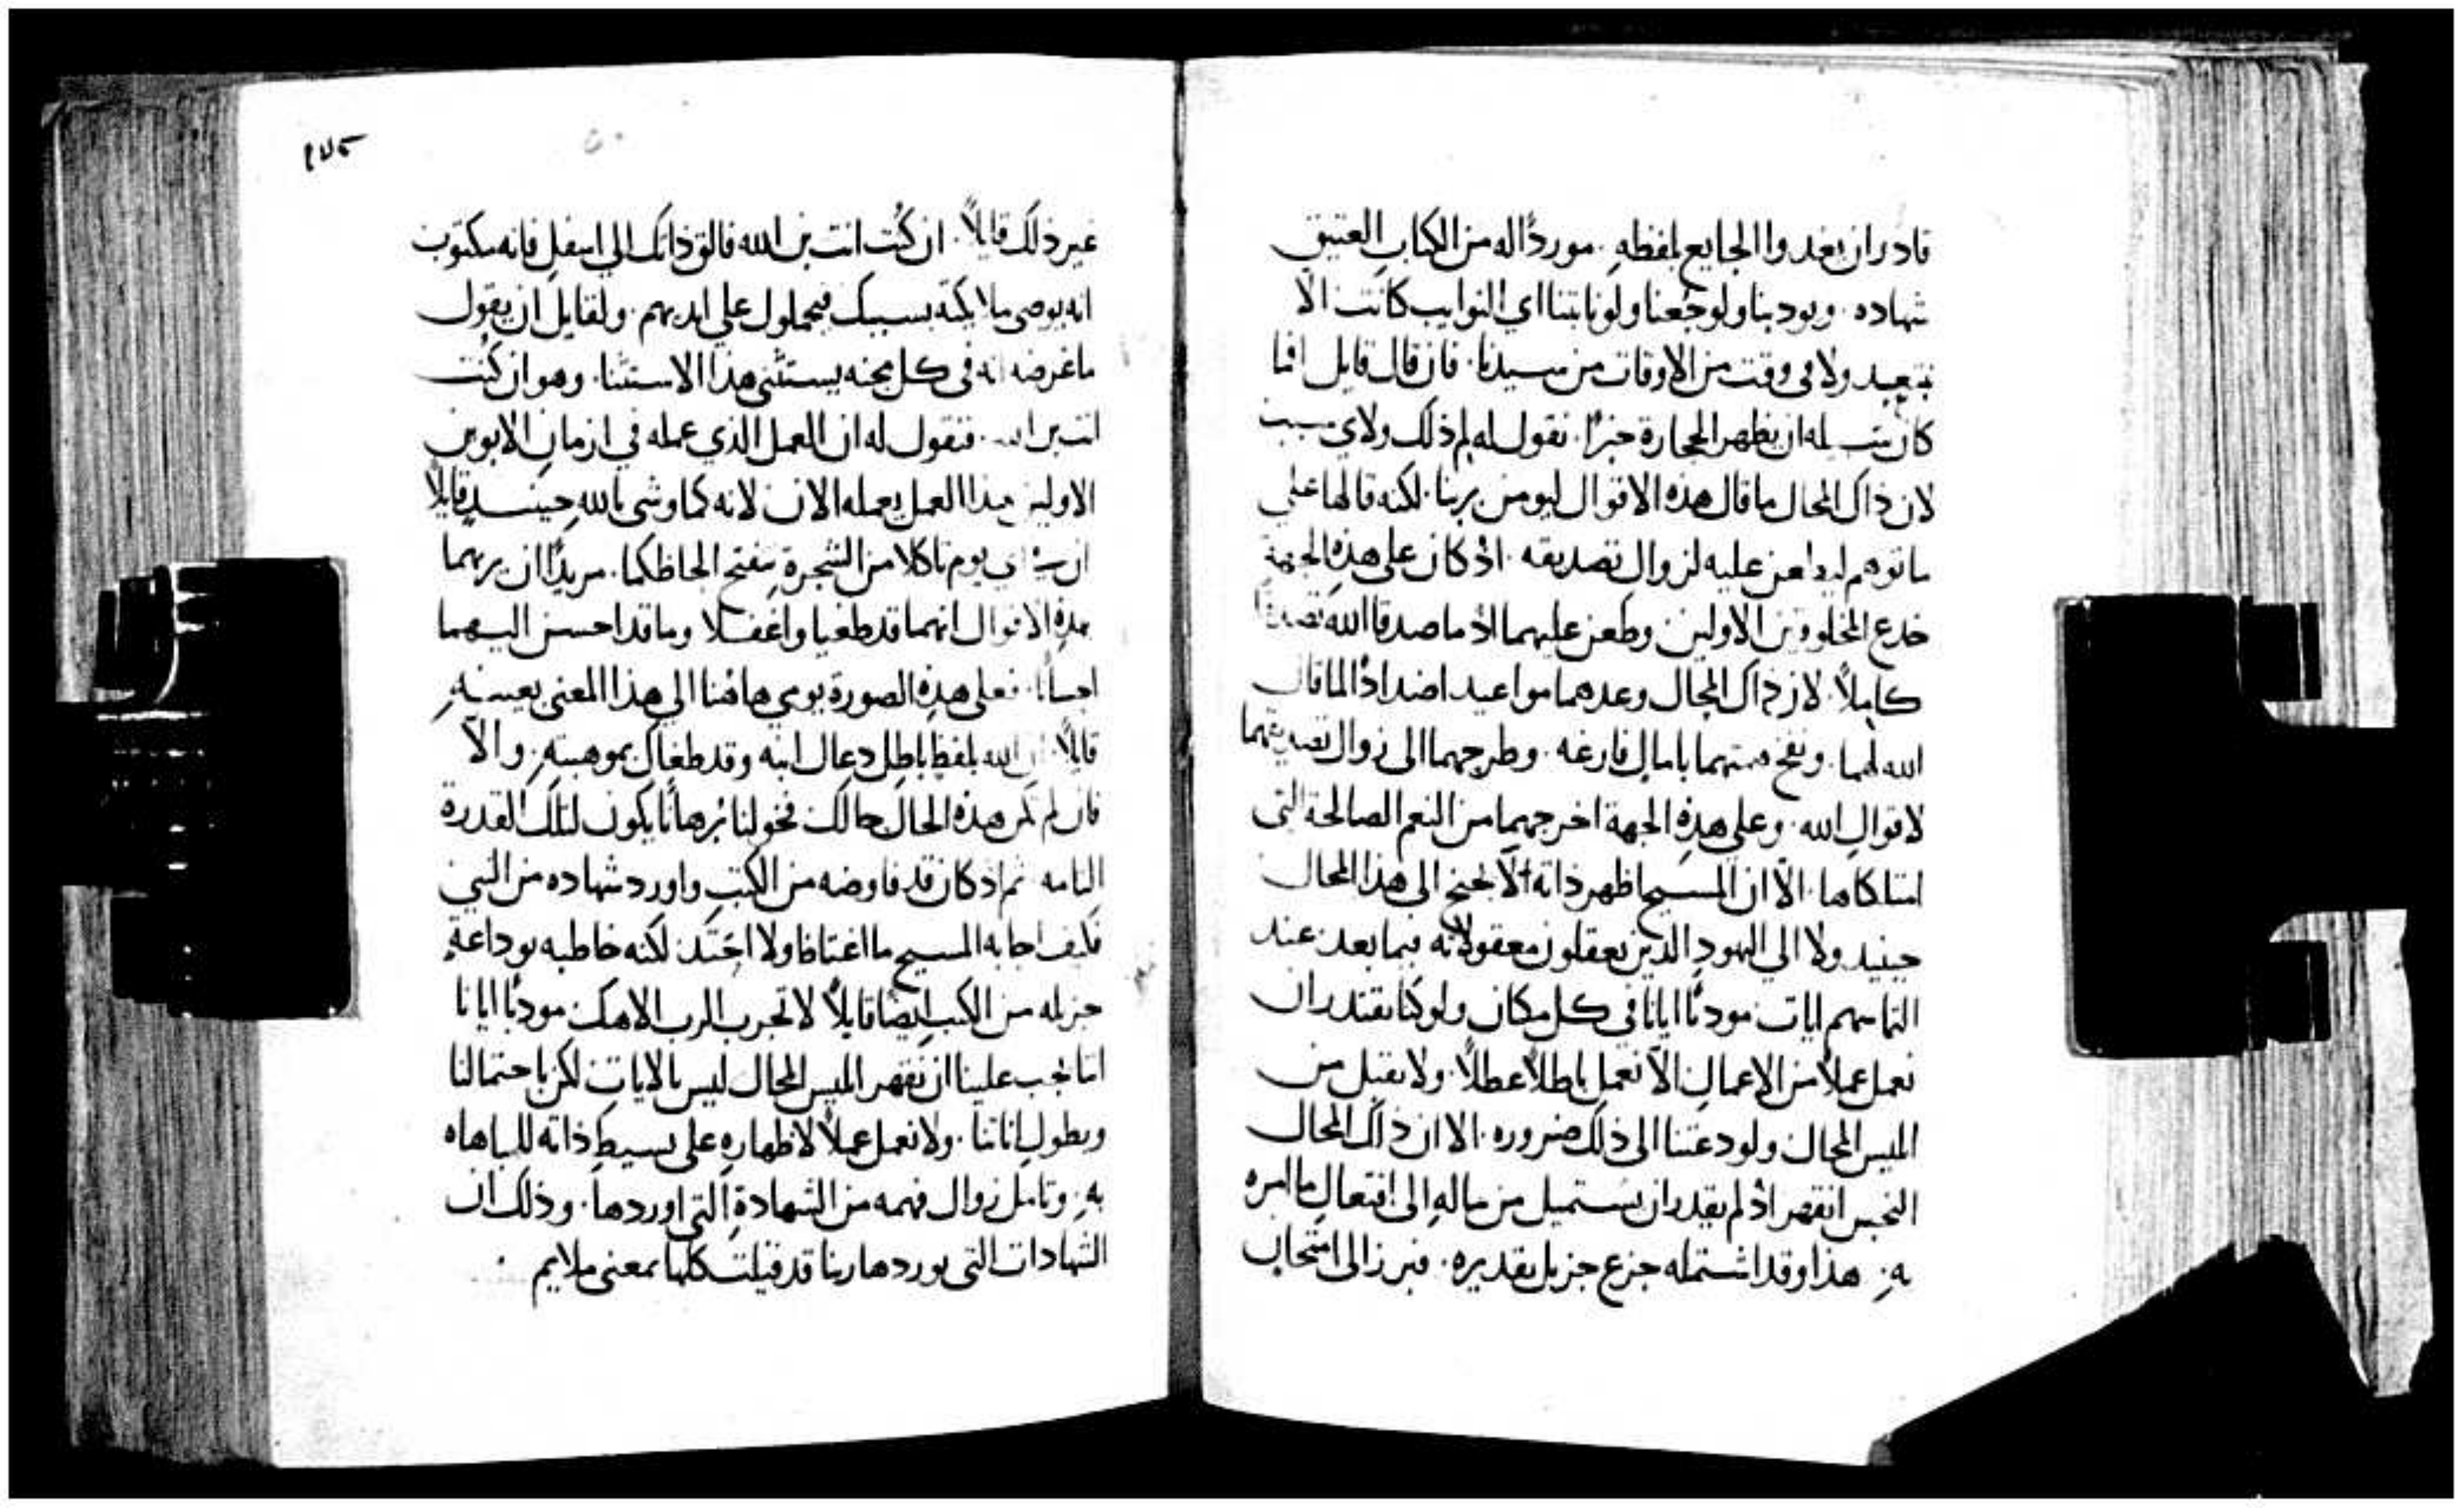 قادر ان يغدوا الجايع بلفظهِ. مورداً له من الكتاب العتيق
شهاده. ويودبنا ولو جُعنا ولو نابتنا اي النوايب كانت الا
نبتعد ولا في وقت من الاوقات من سيدنا. فان قال قايل افما
كان له ان يظهر الحجارة خبزاً. نقول له لِمَ ذلك ولاي سبب
لان ذاك المحال ما قال هذه الاقوال ليومن بربنا. لكنه قالها على
ما توهم عليه لزوال تصديقه. اذ كان على هذهِ الجهة
خدع المخلوقين الاولين وطعن عليهما اذ ما صدقا الله تصديقاً
كاملاً. لان ذاك المحال وعدهما مواعيد اضداداً لما قال
الله لهما. ونفخ بامالٍ فارغه. وطرحهما الى زوال تصديقهما
لاقوال الله. وعلى هذِهِ الجهة اخرجهما من النعم الصالحة التي
امتلكاها. الّا ان المسيح اظهر ذاته الّا يجنح الى هذا المحال
حينيد ولا الي اليهود الذين يعقلون معقولاته فيما بعد عند
التماسهم ايات مودباً ايانا في كل مكان ولو كنا نقتدر ان
نعمل عملاً من الاعمال الّا نعمل باطلاً عطلاً. ولا نقبل من
ابليس المحال ولو دعتنا الى ذلك ضروره. الا ان ذاك المحال
النجس انقهر اذ لم يقدر ان يستميل من ماله الى افتعال ما امره
بهِ. هذا وقد اشتمله جزع جزيل تقديره. فبرز الى امتحان
١٧٥
غير ذلك قايلاً. ان كُنت انت بن الله فالق ذاتك الي اسفل فانه مكتوب
انه يوصي ملايكته بسببك فيحملول على ايديهم. ولقايلٍ ان يقول
ما غرضه انه في كل محنه يستثني هذا الاستثنا. وهو ان كُنت
انت بن الله. فنقول له ان العمل الذي عمله في ازمان الابوين
الاولين هذا العمل يعمله الان لانه كما وشى بالله حينيدٍ قايلاً
ان في اي يوم تاكلا من الشجرةِ تنفتح الحاظكما. مريداً ان يريهما
بهذِهِ الاقوال انهما قد طغيا واغفلا وما قد احسن اليهما
احساناً. فعلى هذِهِ الصورة يومي هاهُنا الي هذا المعنى بعينهِ
قايلاً. ان الله بلفظٍ باطل دعاك ابنه وقد طغاك بموهبتهِ. والّا
فان لم تكن هذه الحال حالك فخولنا بُرهاناً يكون لتلك القدرة
التامه. ثم اذ كان قد فاوضه من الكتب واورد شهاده من النبي
فكيف اجابه المسيح ما اغتاظ ولا احتد لكنه خاطبه بوداعةٍ
جزيله من الكتب ايضاً قايلاً لا تجرب الرب الاهك مودباً ايانا
اننا يجب علينا ان نقهر ابليس المحال ليس بالايات لكن باحتمالنا
وبطول اناتنا. ولا نعمل عملاً لاظهارهِ على بسيطِ ذاته للمباهاه
بهِ. وتامل زوال فهمه من الشهادةِ التي اوردها. وذلك ان
الشهادات التي يوردها ربنا قد قيلت كلها بمعنى ملايم.